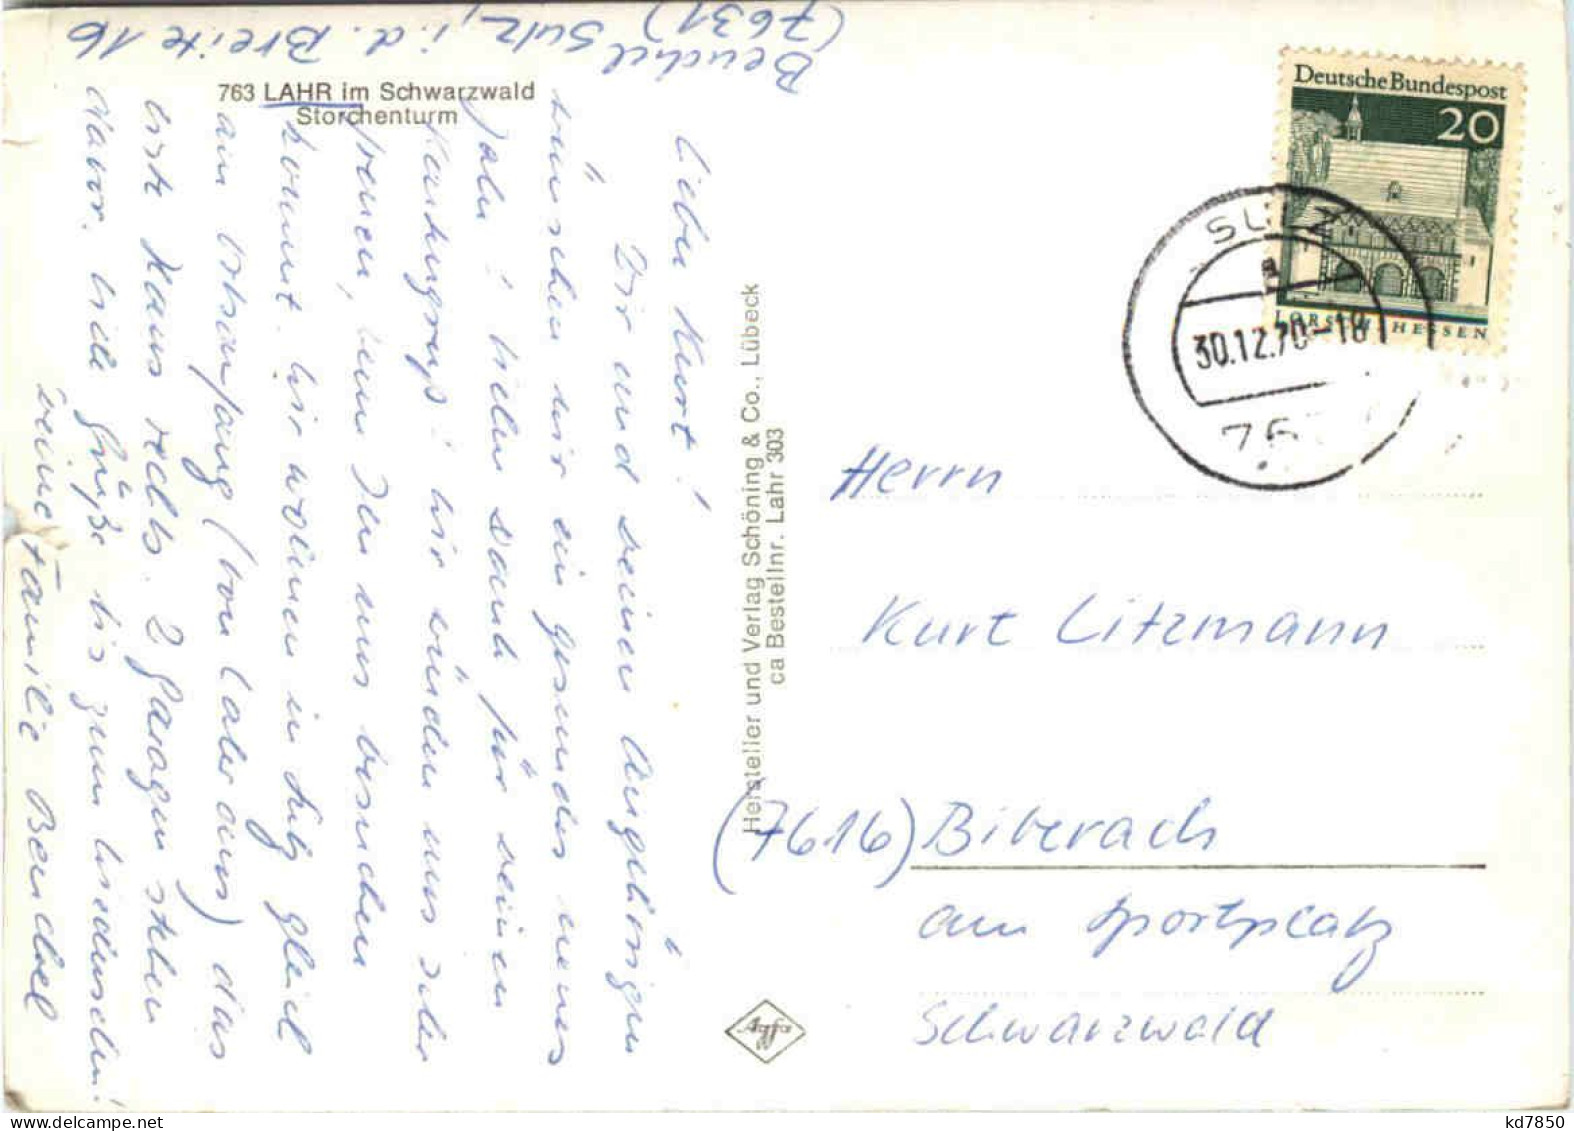 Beuchel
(7631) Sulz, i. d. Breite 16
763 LAHR im Schwarzwald
Storchenturm
Lieber Kurt!
Dir und Deinen Angehörigen
wünschen wir ein gesundes neues
Jahr! Vielen Dank für Deinen
Kartengruß! Wir würden uns sehr
freuen, wenn Du uns besuchen
kommst. Wir wohnen in Sulz gleich
am Ortsanfang (von Lahr aus) das
erste Haus rechts. 2 Garagen stehen
davor. Viele Grüße bis zum Wiedersehn!
Deine Familie Beuchel
Hersteller und Verlag Schöning & Co., Lübeck
ca Bestellnr. Lahr 303
Agfa
Deutsche Bundespost
20
LORSCH · HESSEN
SULZ
a
30.12.70-18
76
Herrn
Kurt Litzmann
(7616) Biberach
am Sportplatz
Schwarzwald
kd7850